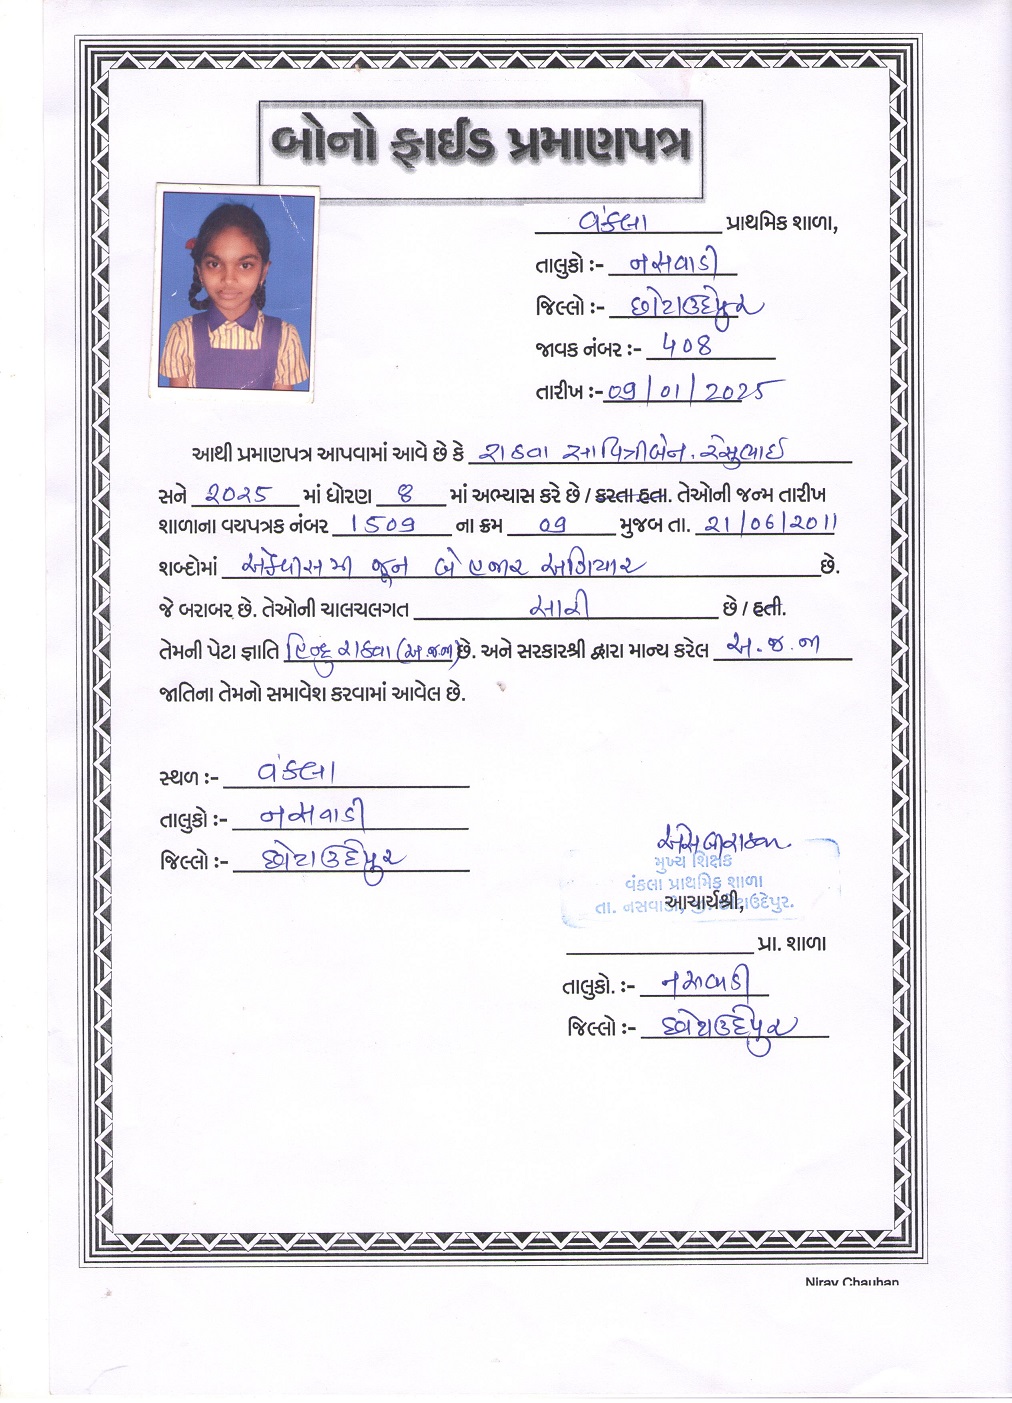 બોનો ફાઈડ પ્રમાણપત્ર
વંકલા પ્રાથમિક શાળા,
તાલુકો :- નસવાડી
જિલ્લો :- છોટાઉદેપુર
જાવક નંબર :- ૪૦૪
તારીખ :- 09/01/2025
આથી પ્રમાણપત્ર આપવામાં આવે છે કે રાઠવા સાવિત્રીબેન. રેસુભાઈ
સને ૨૦૨૫ માં ધોરણ ૪ માં અભ્યાસ કરે છે / કરતા હતા. તેઓની જન્મ તારીખ
શાળાના વયપત્રક નંબર 1509 ના ક્રમ 09 મુજબ તા. 21/06/2011
શબ્દોમાં એકવીસમી જૂન બે હજાર અગિયાર છે.
જે બરાબર છે. તેઓની ચાલચલગત સારી છે / હતી.
તેમની પેટા જ્ઞાતિ હિન્દુ રાઠવા (અ.જ.જા) છે. અને સરકારશ્રી દ્વારા માન્ય કરેલ અ.જ.જા
જાતિના તેમનો સમાવેશ કરવામાં આવેલ છે.
સ્થળ :- વંકલા
તાલુકો :- નસવાડી
જિલ્લો :- છોટાઉદેપુર
મુખ્ય શિક્ષક
વંકલા પ્રાથમિક શાળા
તા. નસવાડી, જી. છોટાઉદેપુર.
આચાર્યશ્રી,
પ્રા. શાળા
તાલુકો. :- નસવાડી
જિલ્લો :- છોટાઉદેપુર
Nirav Chauhan